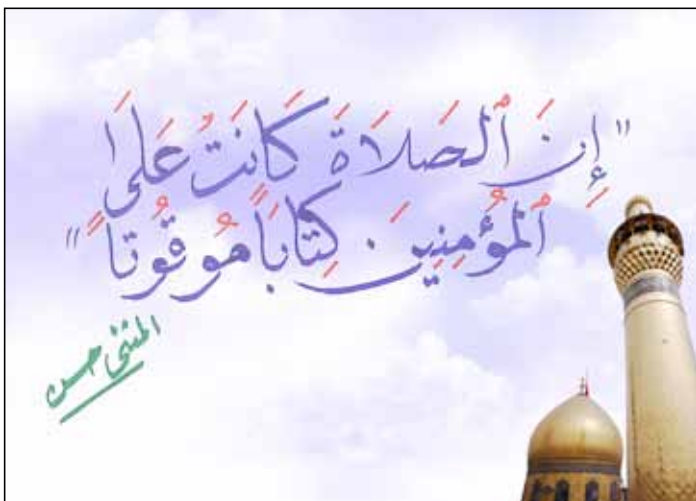 "إِنَ ٱلصَلَاةَ كَانَتْ عَلَى
ٱلْمُؤْمِنِينَ كِتَابًا مَوقُوتًا"
المثنى حسن